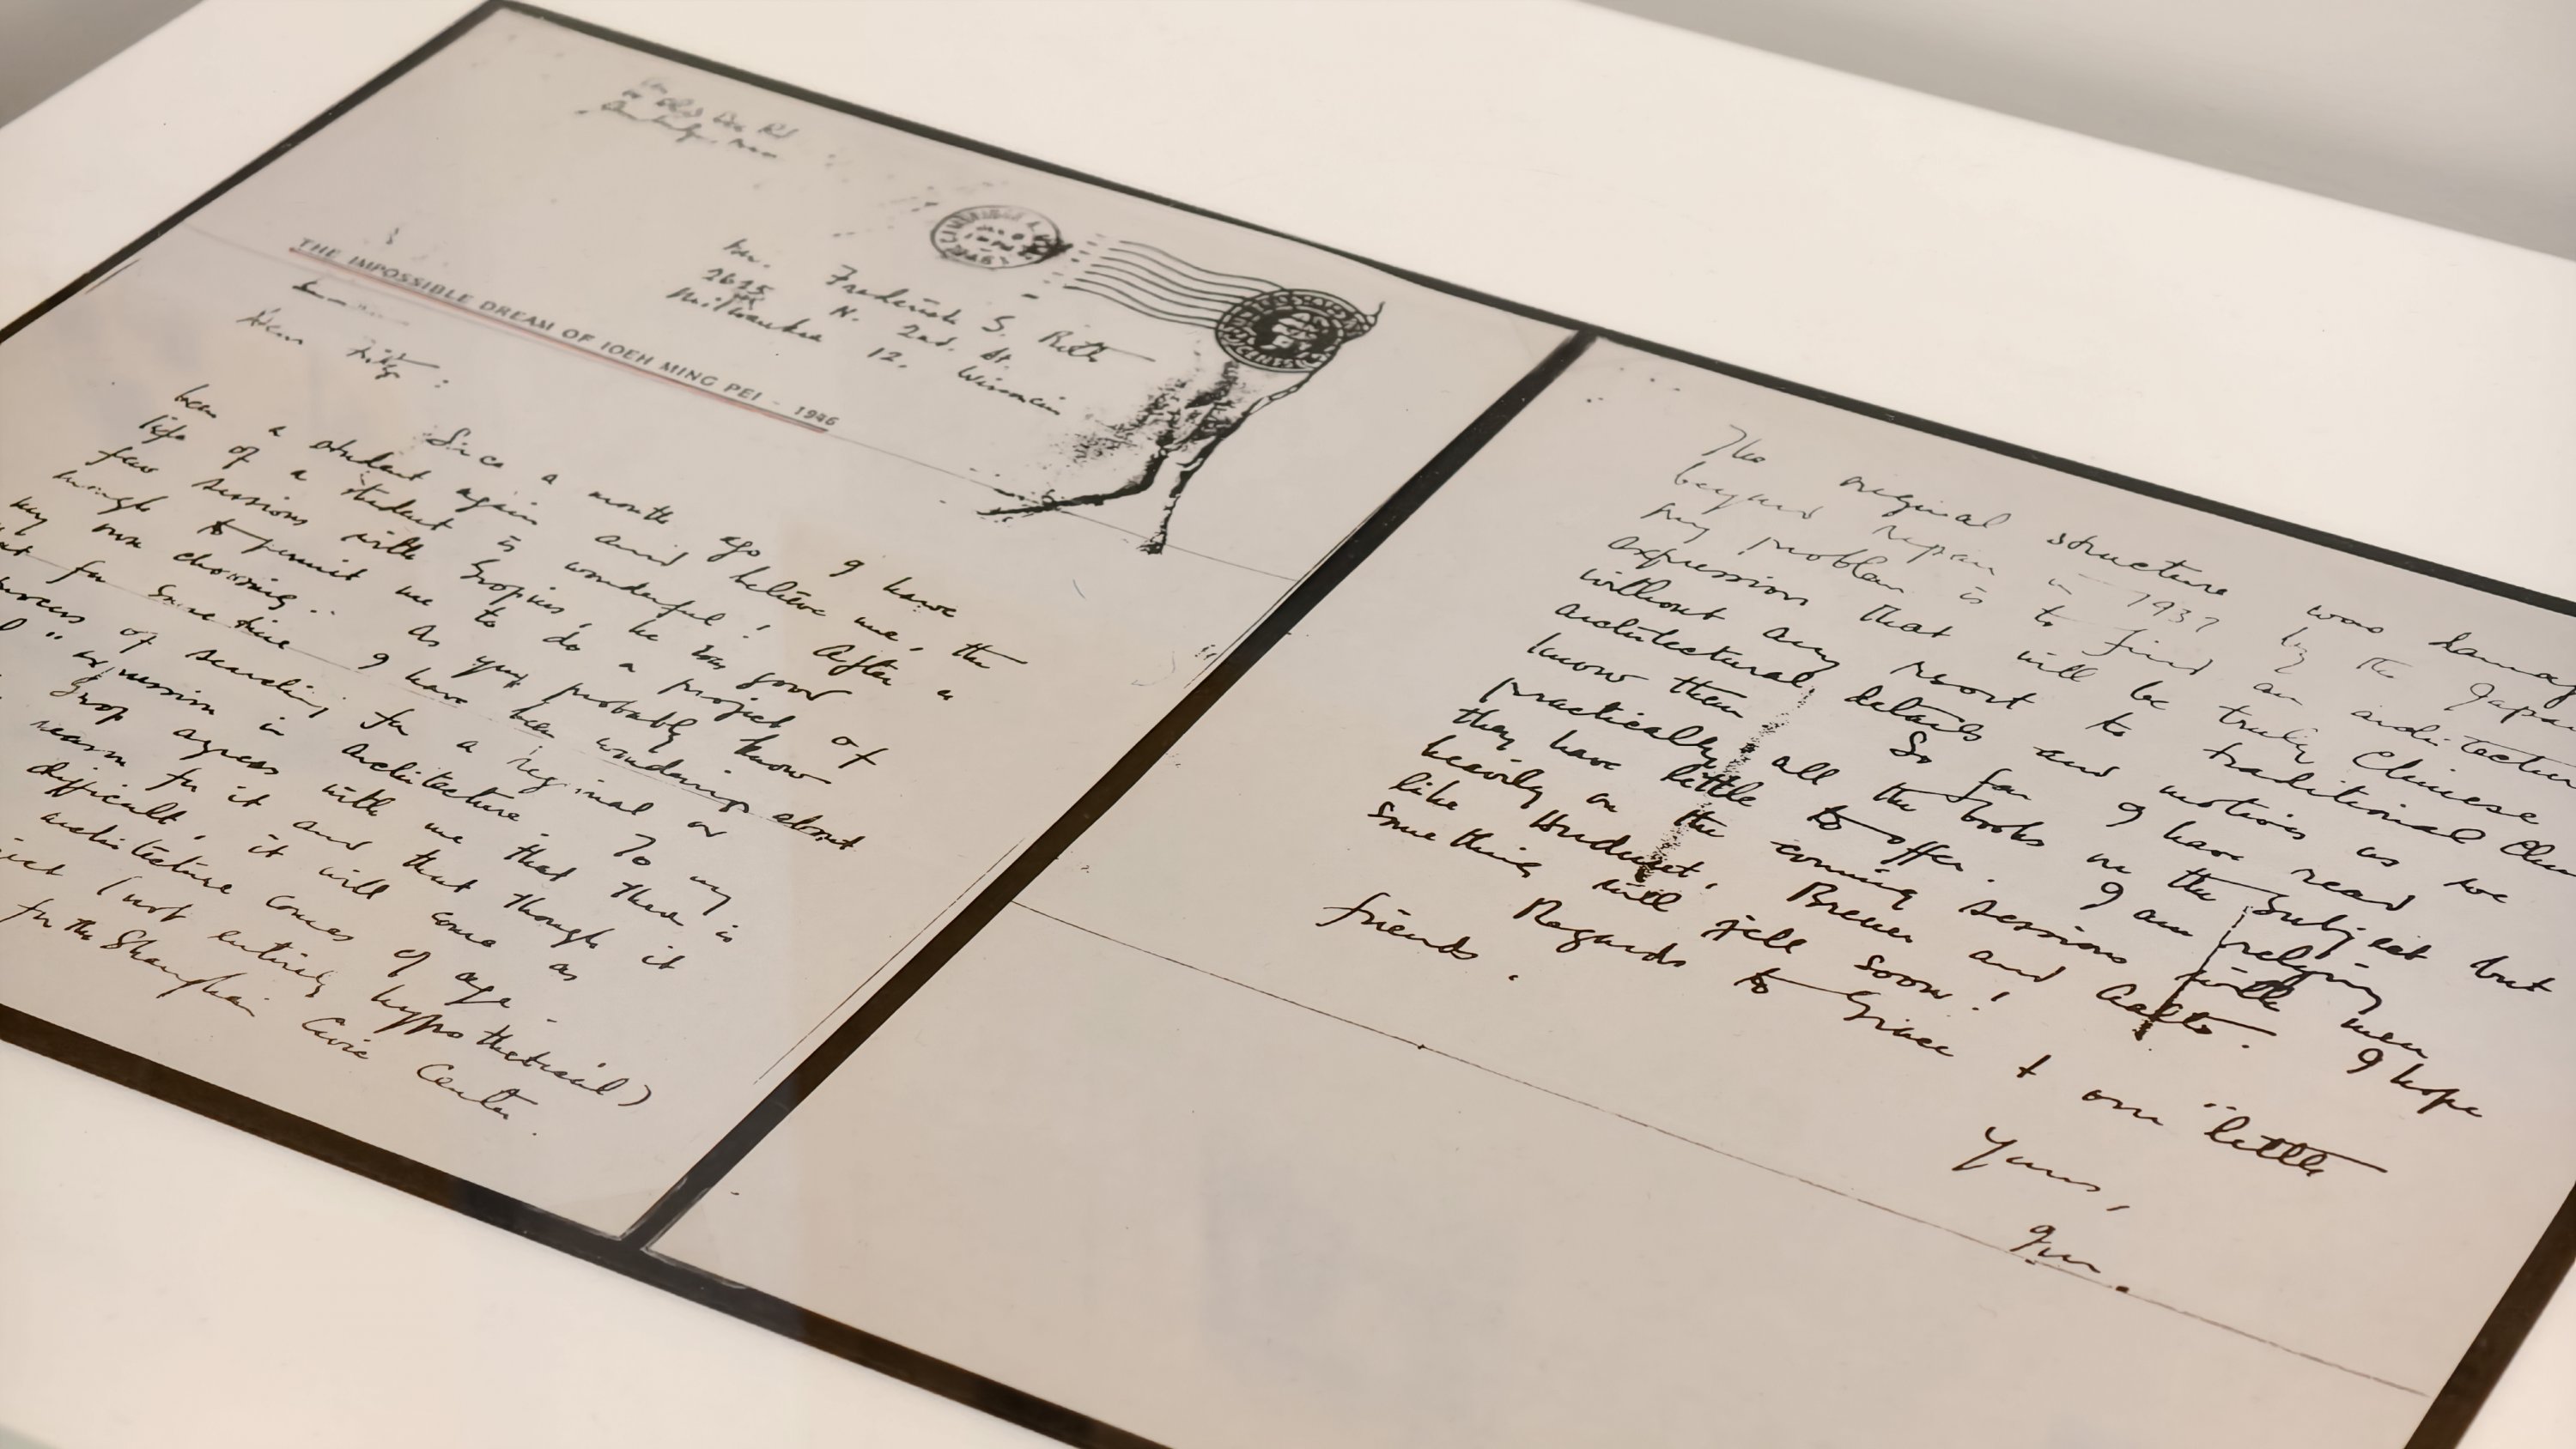 Mr. Frederick S. Roth
2625 N. 2nd. St.
Milwaukee 12. Wisconsin
THE IMPOSSIBLE DREAM OF IOEH MING PEI - 1946
Dear Fritz:
Since a month ago I have
been a student again and believe me, the
life of a student is wonderful! After a
few sessions with Gropius, he was good
enough to permit me to do a project of
my own choosing. As you probably know
for some time I have been wondering about
process of searching for a regional or
" expression in architecture. To my
Grop agrees with me that there is
reason for it and that though it
difficult, it will come as
architecture comes of age.
(not entirely hypothetical)
for the Shanghai Civic Center.
The original structure was damag
beyond repair in 1937 by the Japan
my problem is to find an architectur
expression that will be truly Chinese
without any resort to traditional Chin
architectural details and motives as we
know them. So far I have read
practically all the books on the subject but
they have little to offer. I am relying
heavily on the coming sessions with men
like Hudnut, Breuer and Aalto. I hope
something will jell soon!
Regards to Grace & our "little
friends.
Yours,